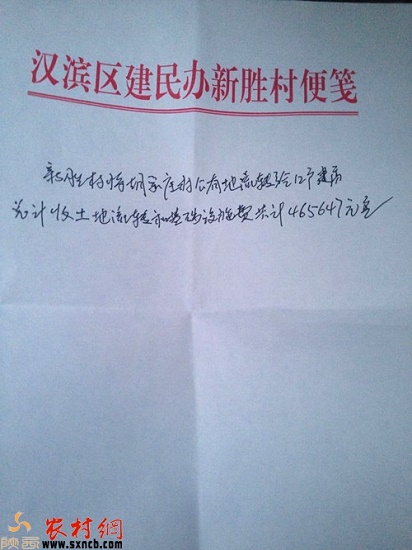 汉滨区建民办新胜村便笺
新胜村将胡家庄村公有地流转给12户建房
共计收土地流转和基础设施费共计465647元
陕西
农村網
www.sxncb.com